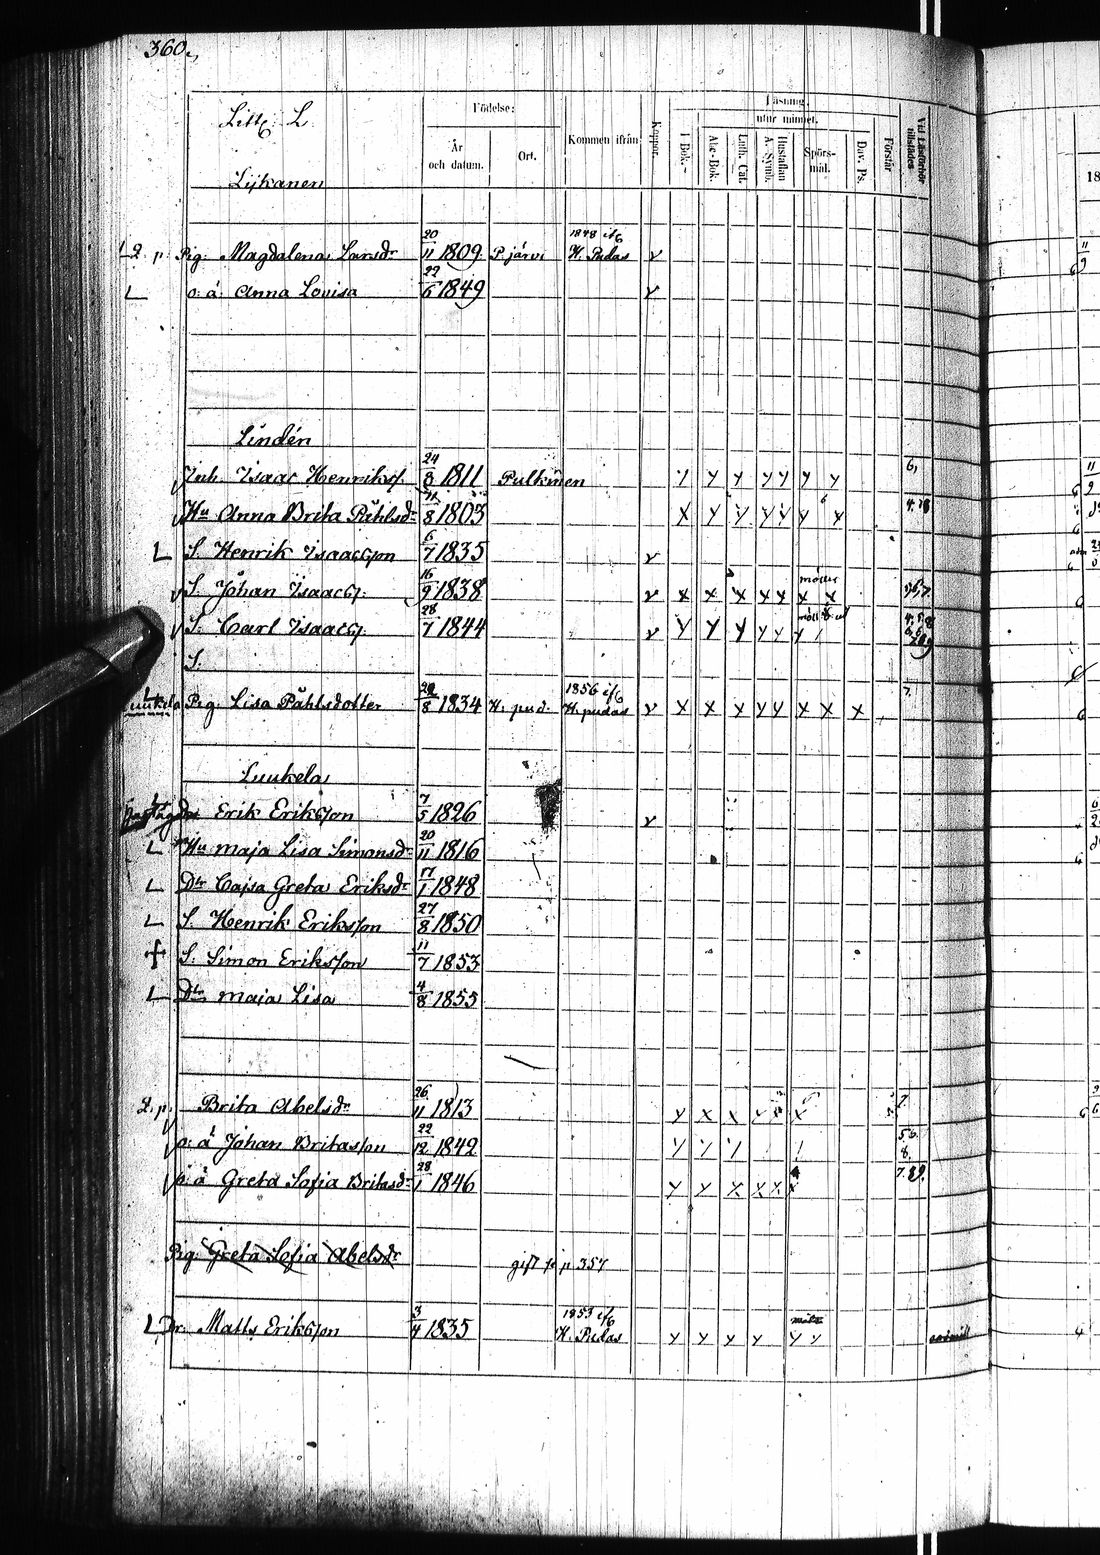 360.
Litt. L.
Födelse:
År och datum.
Ort.
Kommen ifrån
Koppor.
Läsning,
utur minnet.
I Bok.
Abc-Bok.
Luth. Cat.
Hustaflan A. Symb.
Spörsmål.
Dav. Ps.
Förstår
Vid Läsförhör tillstädes
18
Lijkanen
L 2 p. Pig. Magdalena Larsdr 20/11 1809 P. järvi 1848 ifr H. Pudas v
L o. ä Anna Lovisa 22/6 1849 v
Lindén
Inh. Isaac Henrikss. 24/3 1811 Pulkinen 6,
Hu Anna Brita Påhlsdr 11/8 1803
L S. Henrik Isaacsson 6/7 1835 v
S. Johan Isaacss. 16/9 1838 v x x x x x x x
S. Carl Isaacss. 28/7 1844 v
S.
L Pig. Lisa Påhlsdotter 8 1834 H. pud. 1856 ifr H. pudas v x x x x x x x x 7.
Luukela
Erik Eriksson 7/5 1826 v
L Hu Maja Lisa Simonsdr 20/11 1816
L Dtr Cajsa Greta Eriksdr 17/1 1848
L S. Henrik Eriksson 27/8 1850
+ S. Simon Eriksson 11/7 1853
L Dtr Maja Lisa 4/8 1855
2. p. Brita Abelsdr 26/11 1813 7.
o. ä Johan Britasson 22/12 1842 5.6. 8.
o. ä Greta Sofia Britasdr 28/1 1846 7.8.9.
Pig. Greta Sofia Abelsdr gift p. 357
L Dr. Matts Eriksson 3/4 1835 1853 ifr H. Pudas